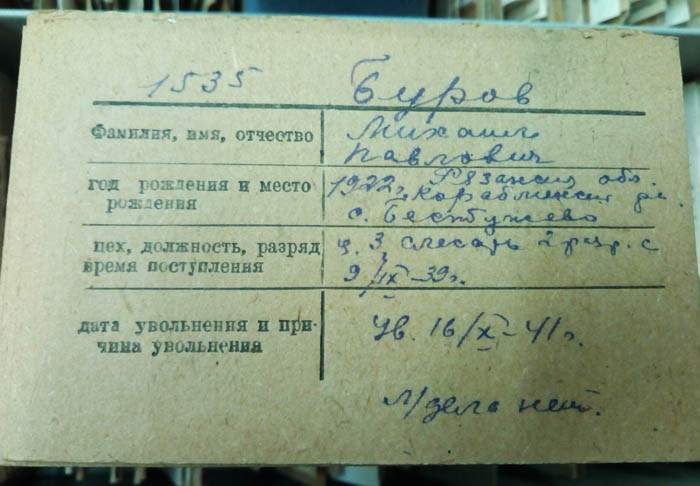 1535 Буров
Фамилия, имя, отчество Михаил
Павлович
год рождения и место 1922г. Рязанск обл.
рождения Кораблинск
с. Бестужево
цех, должность, разряд ц. 3 слесарь 2 разр. с
время поступления 9/IX-39г.
дата увольнения и при- ув. 16/X-41г.
чина увольнения
л/дела нет.